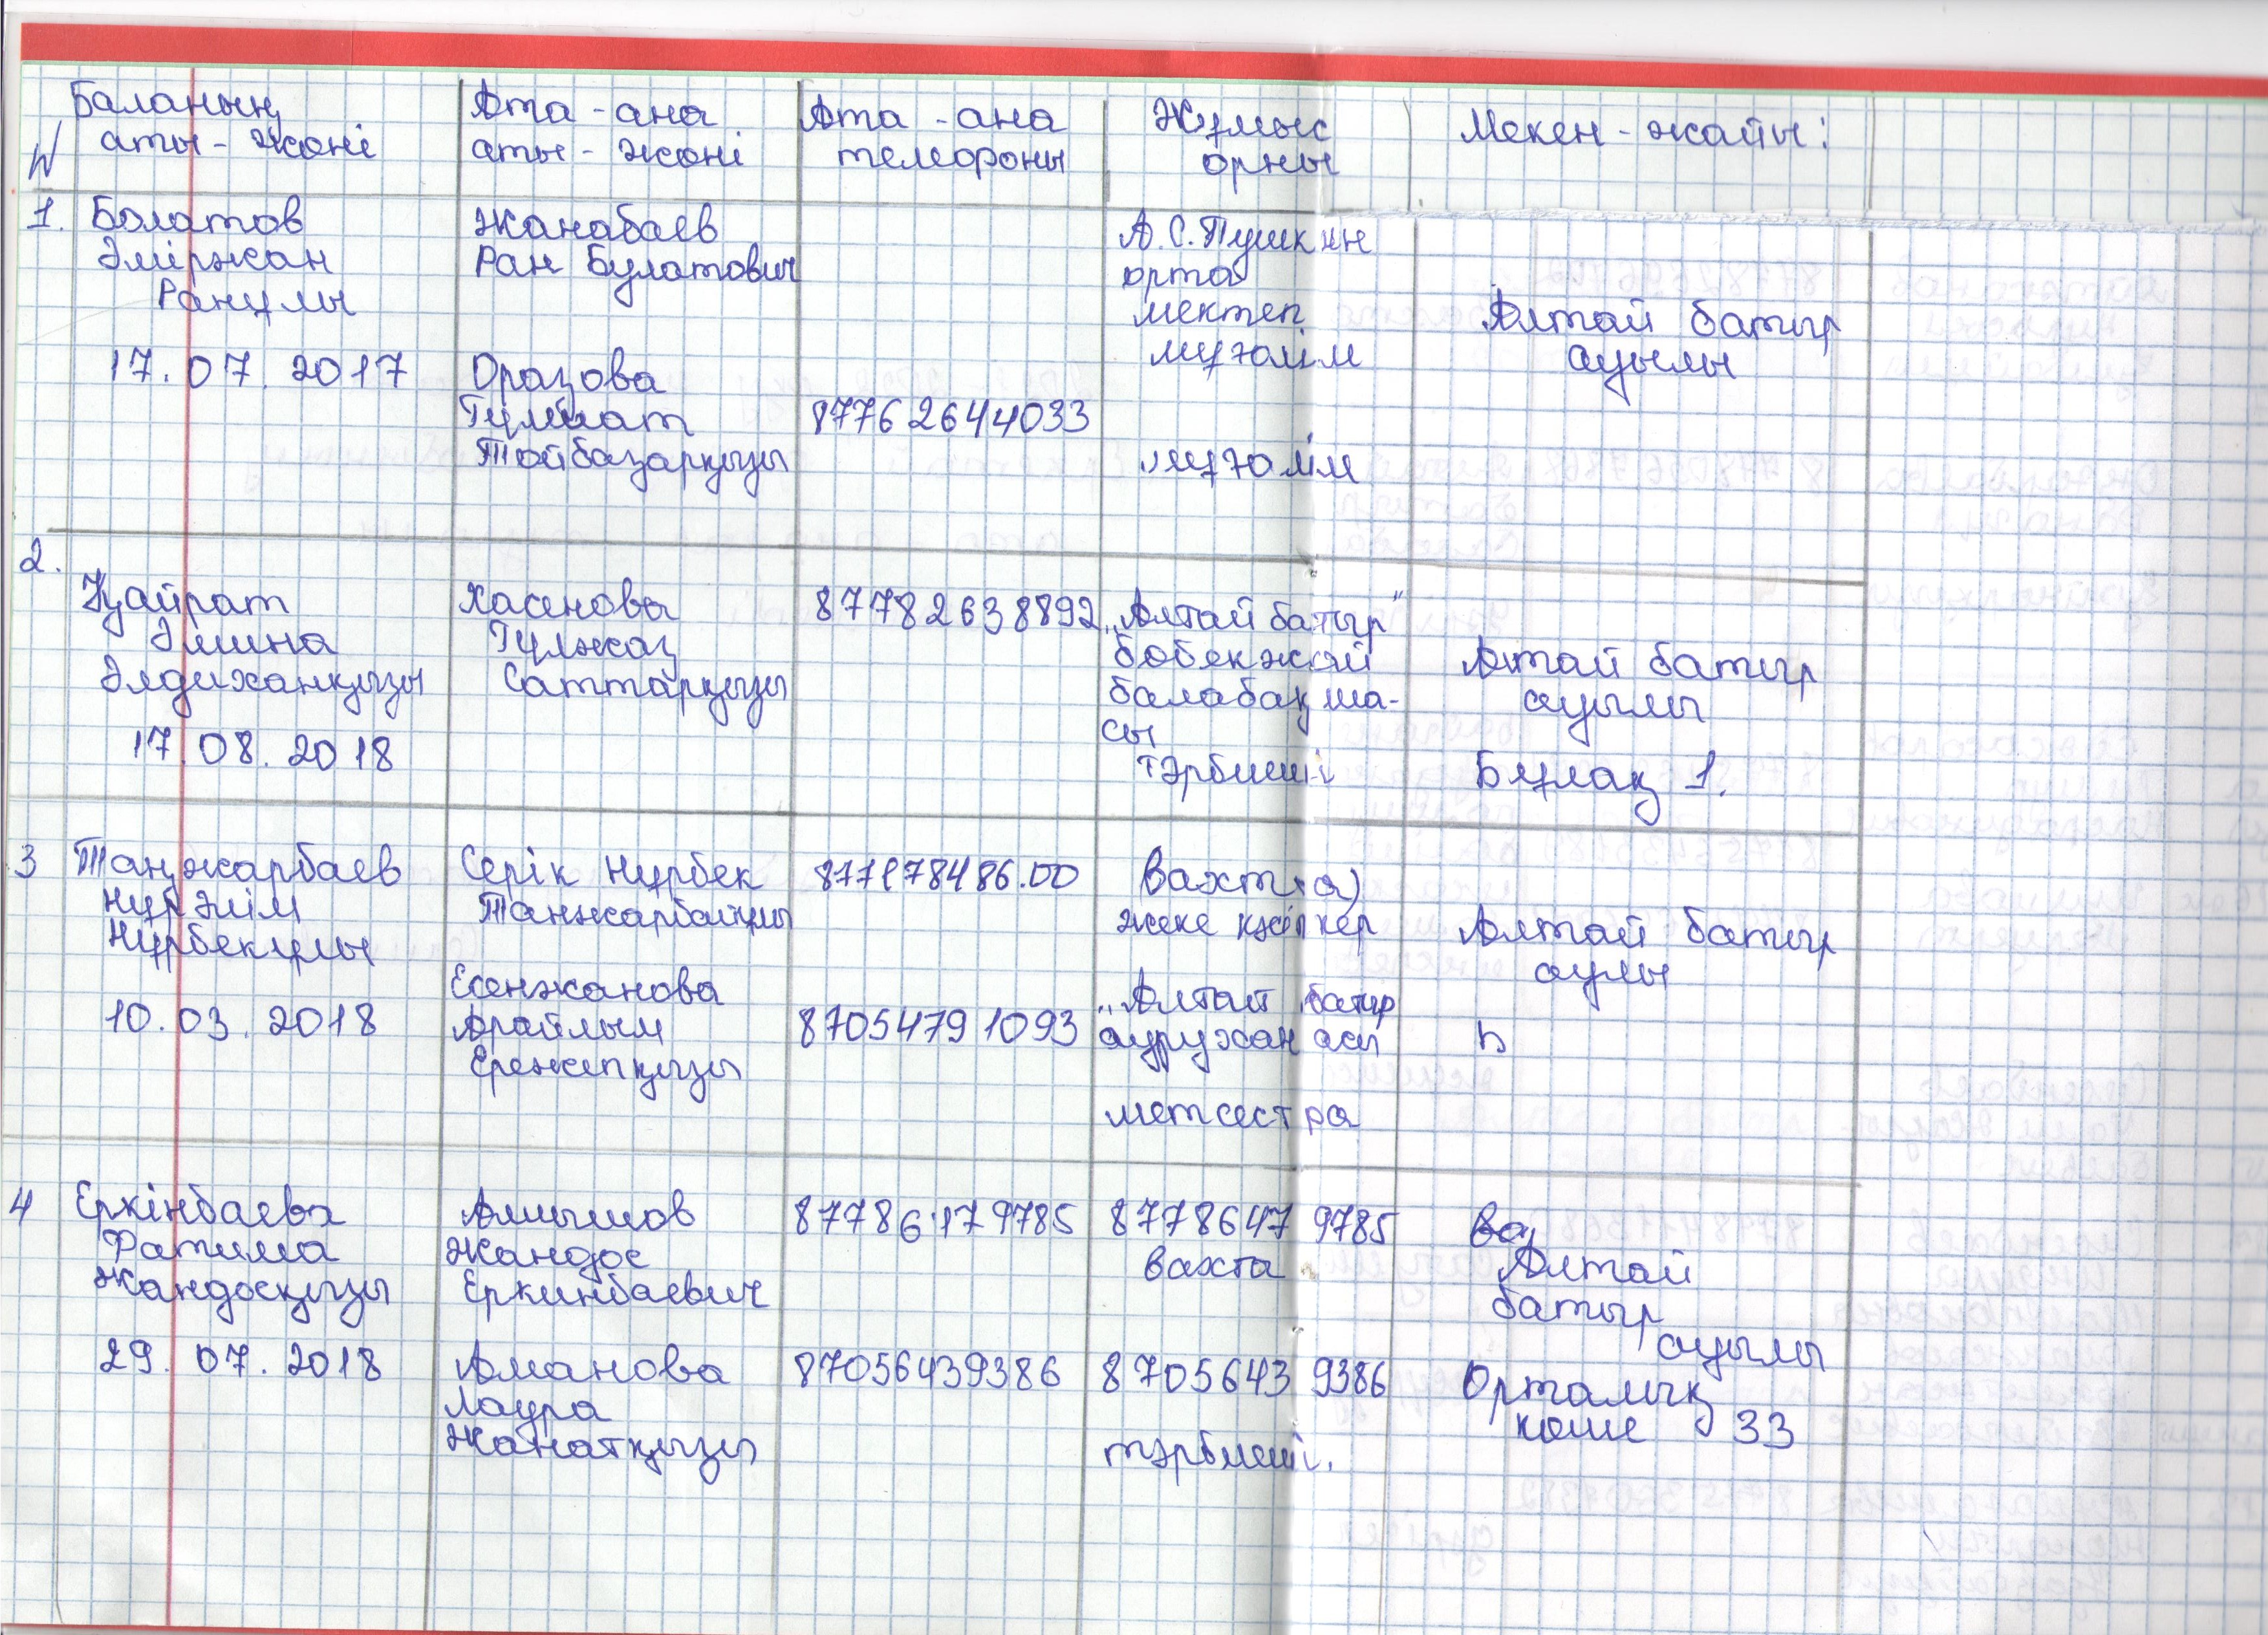 Баланың Ата - ана Ата - ана Жұмыс Мекен - жайы:
N аты - жөні аты - жөні телефоны орны
1. Болатов Жанабаев А.С.Пушкин
Әміржан Ран Булатович орта
Ранұлы мектеп Алтай батыр
17.07.2017 Оразова мұғалім ауылы
87762644033
Тойбазарқызы мұғалім
2.
Қайрат Хасенова 87782638892 „Алтай батыр"
Әмина Гүлжаз бөбекжай Алтай батыр
Әлдиханқызы Саттарқызы балабақша- ауылы
17.08.2018 сы
тәрбиеші Бұлақ 1.
3 Таңжарбаев Серік Нұрбек Вахта)
Нұрәлім Танжарбайұлы жеке кәсіпкер Алтай батыр
Нұрбекұлы аулы
Есенжанова „Алтай батыр
10.03.2018 Арайлым 87054791093 ауруханасы
Ережепқызы
метсестра
4 Еркінбаева Алшышов 87786179785 87786479785 Ва
Фатима Жандос вахта Алтай
Жандосқызы Еркинбаевич батыр
ауылы
29.07.2018 Аманова 87056439386 87056439386 Орталық
Лаура көше 33
Жанатқызы тәрбиеші.